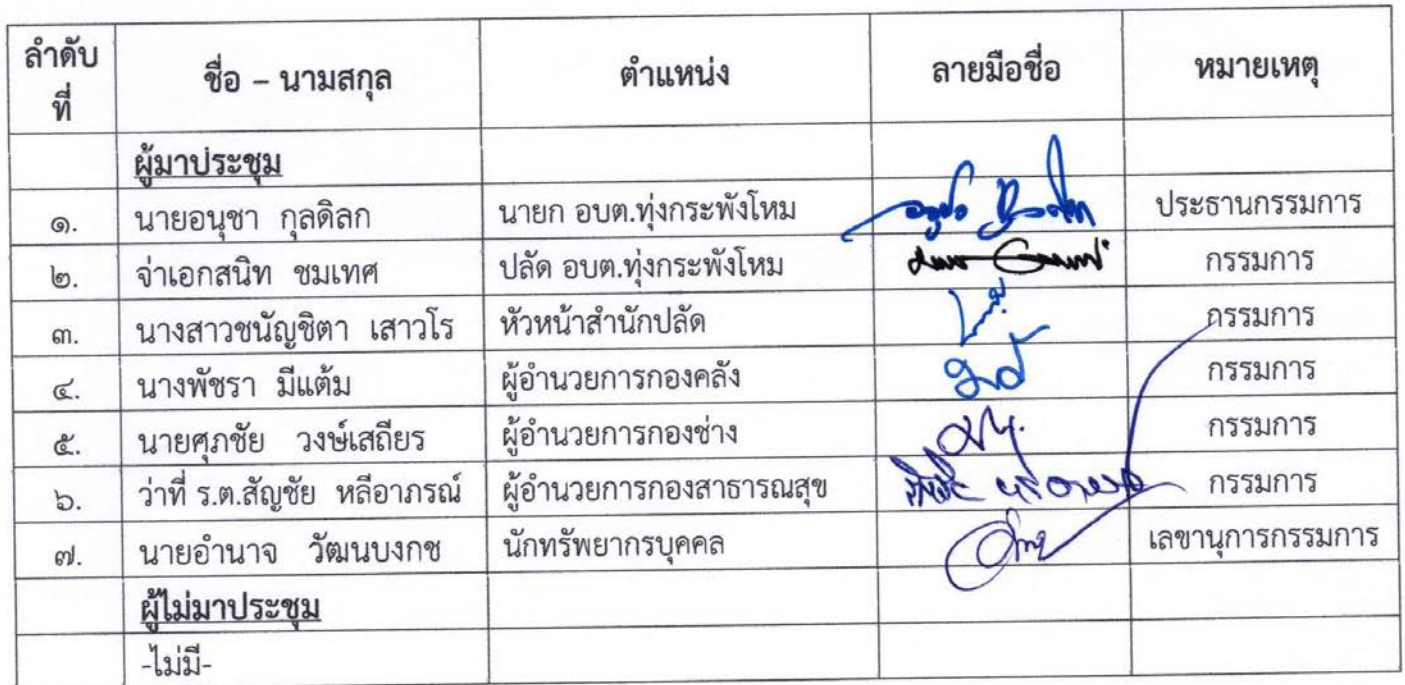 ลำดับที่ ชื่อ – นามสกุล ตำแหน่ง ลายมือชื่อ หมายเหตุ
ผู้มาประชุม
๑. นายอนุชา กุลดิลก นายก อบต.ทุ่งกระพังโหม ประธานกรรมการ
๒. จ่าเอกสนิท ชมเทศ ปลัด อบต.ทุ่งกระพังโหม กรรมการ
๓. นางสาวชนัญชิตา เสาวโร หัวหน้าสำนักปลัด กรรมการ
๔. นางพัชรา มีแต้ม ผู้อำนวยการกองคลัง กรรมการ
๕. นายศุภชัย วงษ์เสถียร ผู้อำนวยการกองช่าง กรรมการ
๖. ว่าที่ ร.ต.สัญชัย หลีอาภรณ์ ผู้อำนวยการกองสาธารณสุข กรรมการ
๗. นายอำนาจ วัฒนบงกช นักทรัพยากรบุคคล เลขานุการกรรมการ
ผู้ไม่มาประชุม
-ไม่มี-